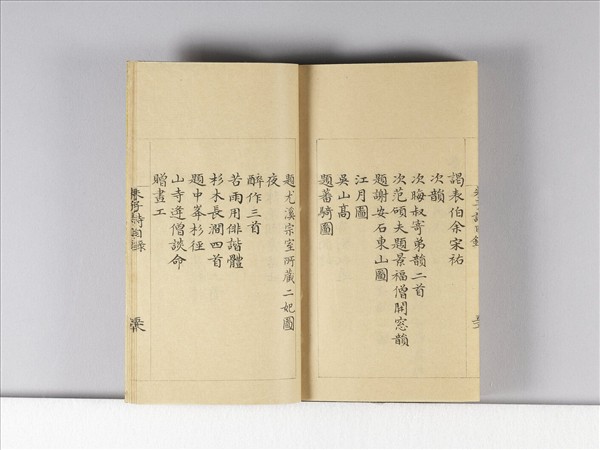 謁表伯余宋祐
次韻
次晦叔寄弟韻二首
次范碩夫題景福僧開窓韻
題謝安石東山圖
江月圖
吳山高
題蕃騎圖
題尤溪宗室所藏二妃圖
夜
醉作三首
苦雨用俳諧體
杉木長澗四首
題中峯杉徑
山寺逢僧談命
贈畫工